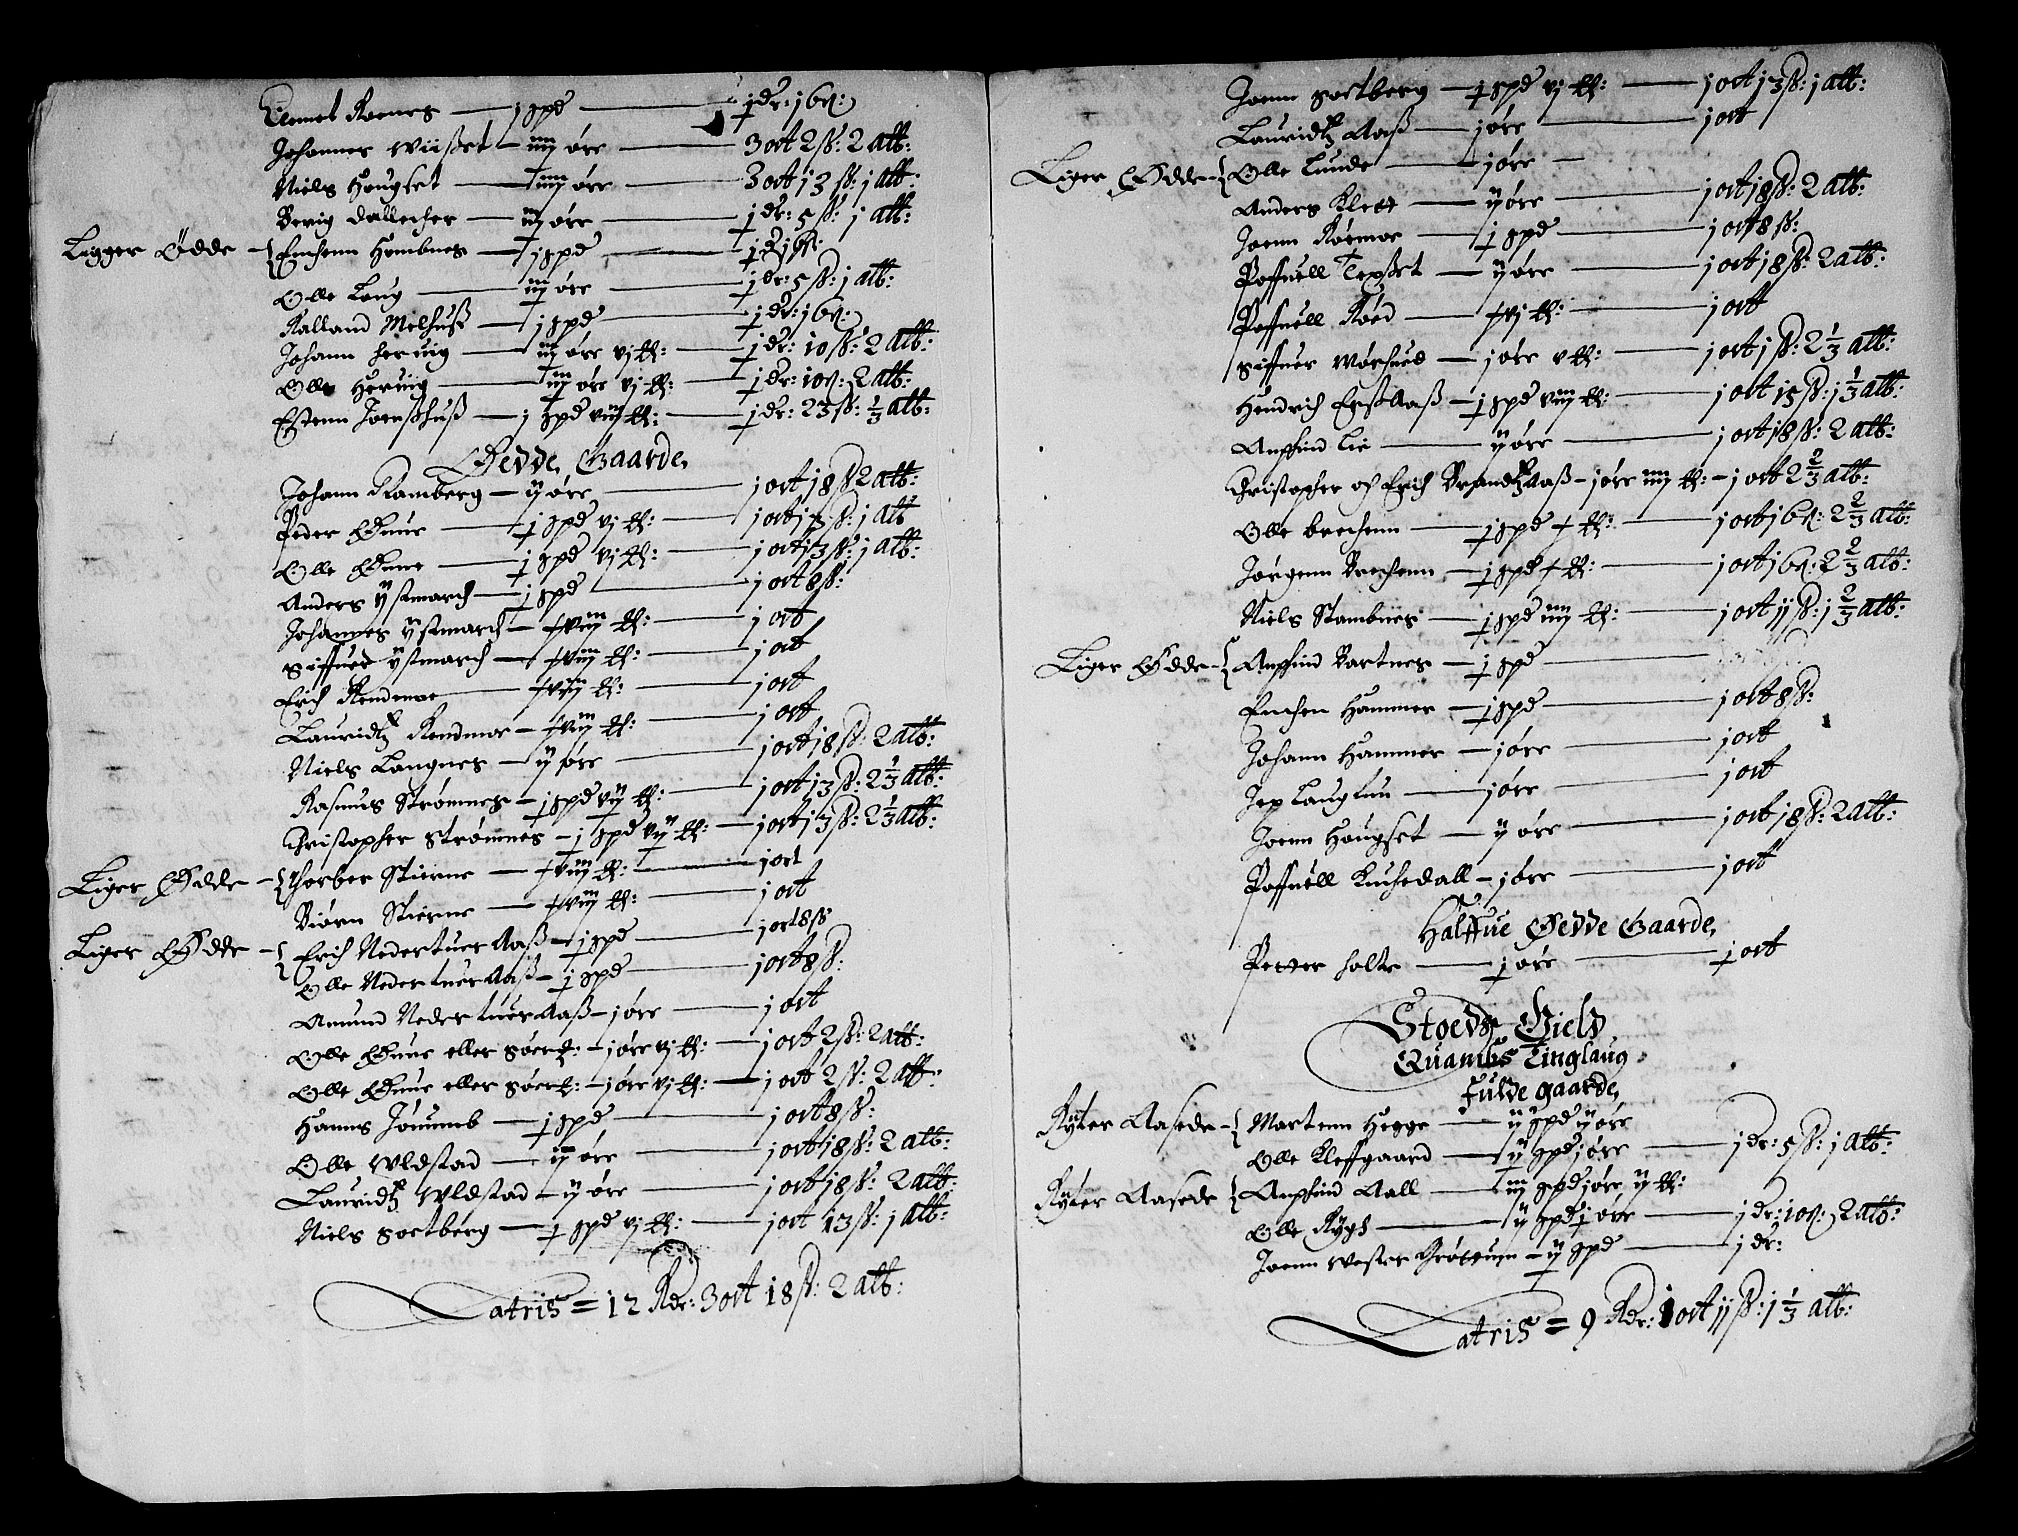 Clemet Roenes — j spd — j dr: 16 ß:
Johannes Wiißet — iiij øre — 3 ort 2 ß: 2 alb:
Niels Hougset — iiij øre — 3 ort 13 ß: j alb:
Berig Dallecher — iij øre — j dr: 5 ß: j alb:
Ligger Ødde — { Enchenn Hembnes — j spd — j dr 16 ß:
Olle Laug — iij øre — j dr: 5 ß: j alb:
Kalland Melhuß — j spd — j dr: 16 ß:
Johann Heruig — iij øre vj th: — j dr: 10 ß: 2 alb:
Olle Heruig — iij øre vj th: — j dr: 10 ß: 2 alb:
Estenn Joenshuß — j spd viij th: — j dr: 23 ß: ⅓ alb:
Øedde Gaarde,
Johann Ramberg — ij øre — j ort 18 ß 2 alb:
Peder Øune — j spd vj th: — j ort 13 ß: j alb
Olle Øune — j spd vj th: — j ort 13 ß: j alb:
Anders Ystmarch — j spd — j ort 8 ß:
Johannes Ystmarch — viij th: — j ort
Siffued Ystmarch — viij th: — j ort
Erich Rendmoe — viij th: — j ort
Lauridtz Rendmoe — viij th: — j ort
Niels Langnes — ij øre — j ort 18 ß: 2 alb:
Rasmus Strømnes — j spd vij th: — j ort 13 ß: 2⅓ alb:
Christopher Strømnes — j spd vij th: — j ort 13 ß: 2⅓ alb:
Liger Ødde — { Thorber Stierne — viij th: — j ort
Biørn Stierne — viij th: — j ort
Liger Ødde — { Erich Nedertuer Aaß — j spd — j ort 8 ß
Olle Nedertuer Aaß — j spd — j ort 8 ß:
Amund Nedertuer Aaß — j øre — j ort
Olle Øune eller Søert: — j øre vj th: — j ort 2 ß: 2 alb:
Olle Øune eller Søert: — j øre vj th: — j ort 2 ß: 2 alb:
Hanns Jønumb — j spd — j ort 8 ß:
Olle Wldstad — ij øre — j ort 18 ß: 2 alb:
Lauridtz Wldstad — ij øre — j ort 18 ß: 2 alb:
Niels Soetberg — j spd vj th: — j ort 13 ß: j alb:
Latris = 12 Rdr: 3 ort 18 ß: 2 alb:
Joenn Soetberg — j spd vj th: — j ort 13 ß: j alb:
Lauridtz Aaß — j øre — j ort
Liger Ødde — { Olle Lunde — j øre —
Anders Klett — ij øre — j ort 18 ß: 2 alb:
Joenn Rørmoe — j spd — j ort 8 ß:
Poffuell Tepßet — ij øre — j ort 18 ß: 2 alb:
Poffuell Røed — vj th: — j ort
Siffuer Wørhued — j øre v th: — j ort j ß: 2⅓ alb:
Hendrich EgstAaß — j spd viij th: — j ort 15 ß: j⅓ alb:
Anphind Lie — ij øre — j ort 18 ß: 2 alb:
Christopher och Erich BrandtzAaß — j øre iiij th: — j ort 2⅔ alb:
Olle Brechenn — j spd x th: — j ort 16 ß: 2⅔ alb:
Jørgenn Brechenn — j spd x th: — j ort 16 ß: 2⅔ alb:
Niels Stambnes — j spd iiij th: — j ort 11 ß: j⅔ alb:
Liger Ødde — { Anphind Bartnes — j spd —
Enchen Hammer — j spd — j ort 8 ß:
Johann Hammer — j øre — j ort
Jep Laugtuu — j øre — j ort
Joenn Hougset — ij øre — j ort 18 ß: 2 alb:
Poffuell Kuchedall — j øre — j ort
Halffue Øedde Gaarde,
Petter Holte — j øre — j ort
Stoeds Gield
Quambs Tinglaug
Fulde gaarde,
Ryter Aasede — { Martenn Hegge — ij spd ij øre
Olle Kleffgaard — ij spd j øre — j dr: 5 ß: j alb:
Ryter Aasede { Anphind Aall — iij spd j øre ij th:
Olle Rygh — ij spd j øre — j dr: 10 ß: 2 alb:
Joenn Wester Grøttum — ij spd — j dr:
Latris = 9 Rdr: 1 ort 11 ß: j⅓ alb: